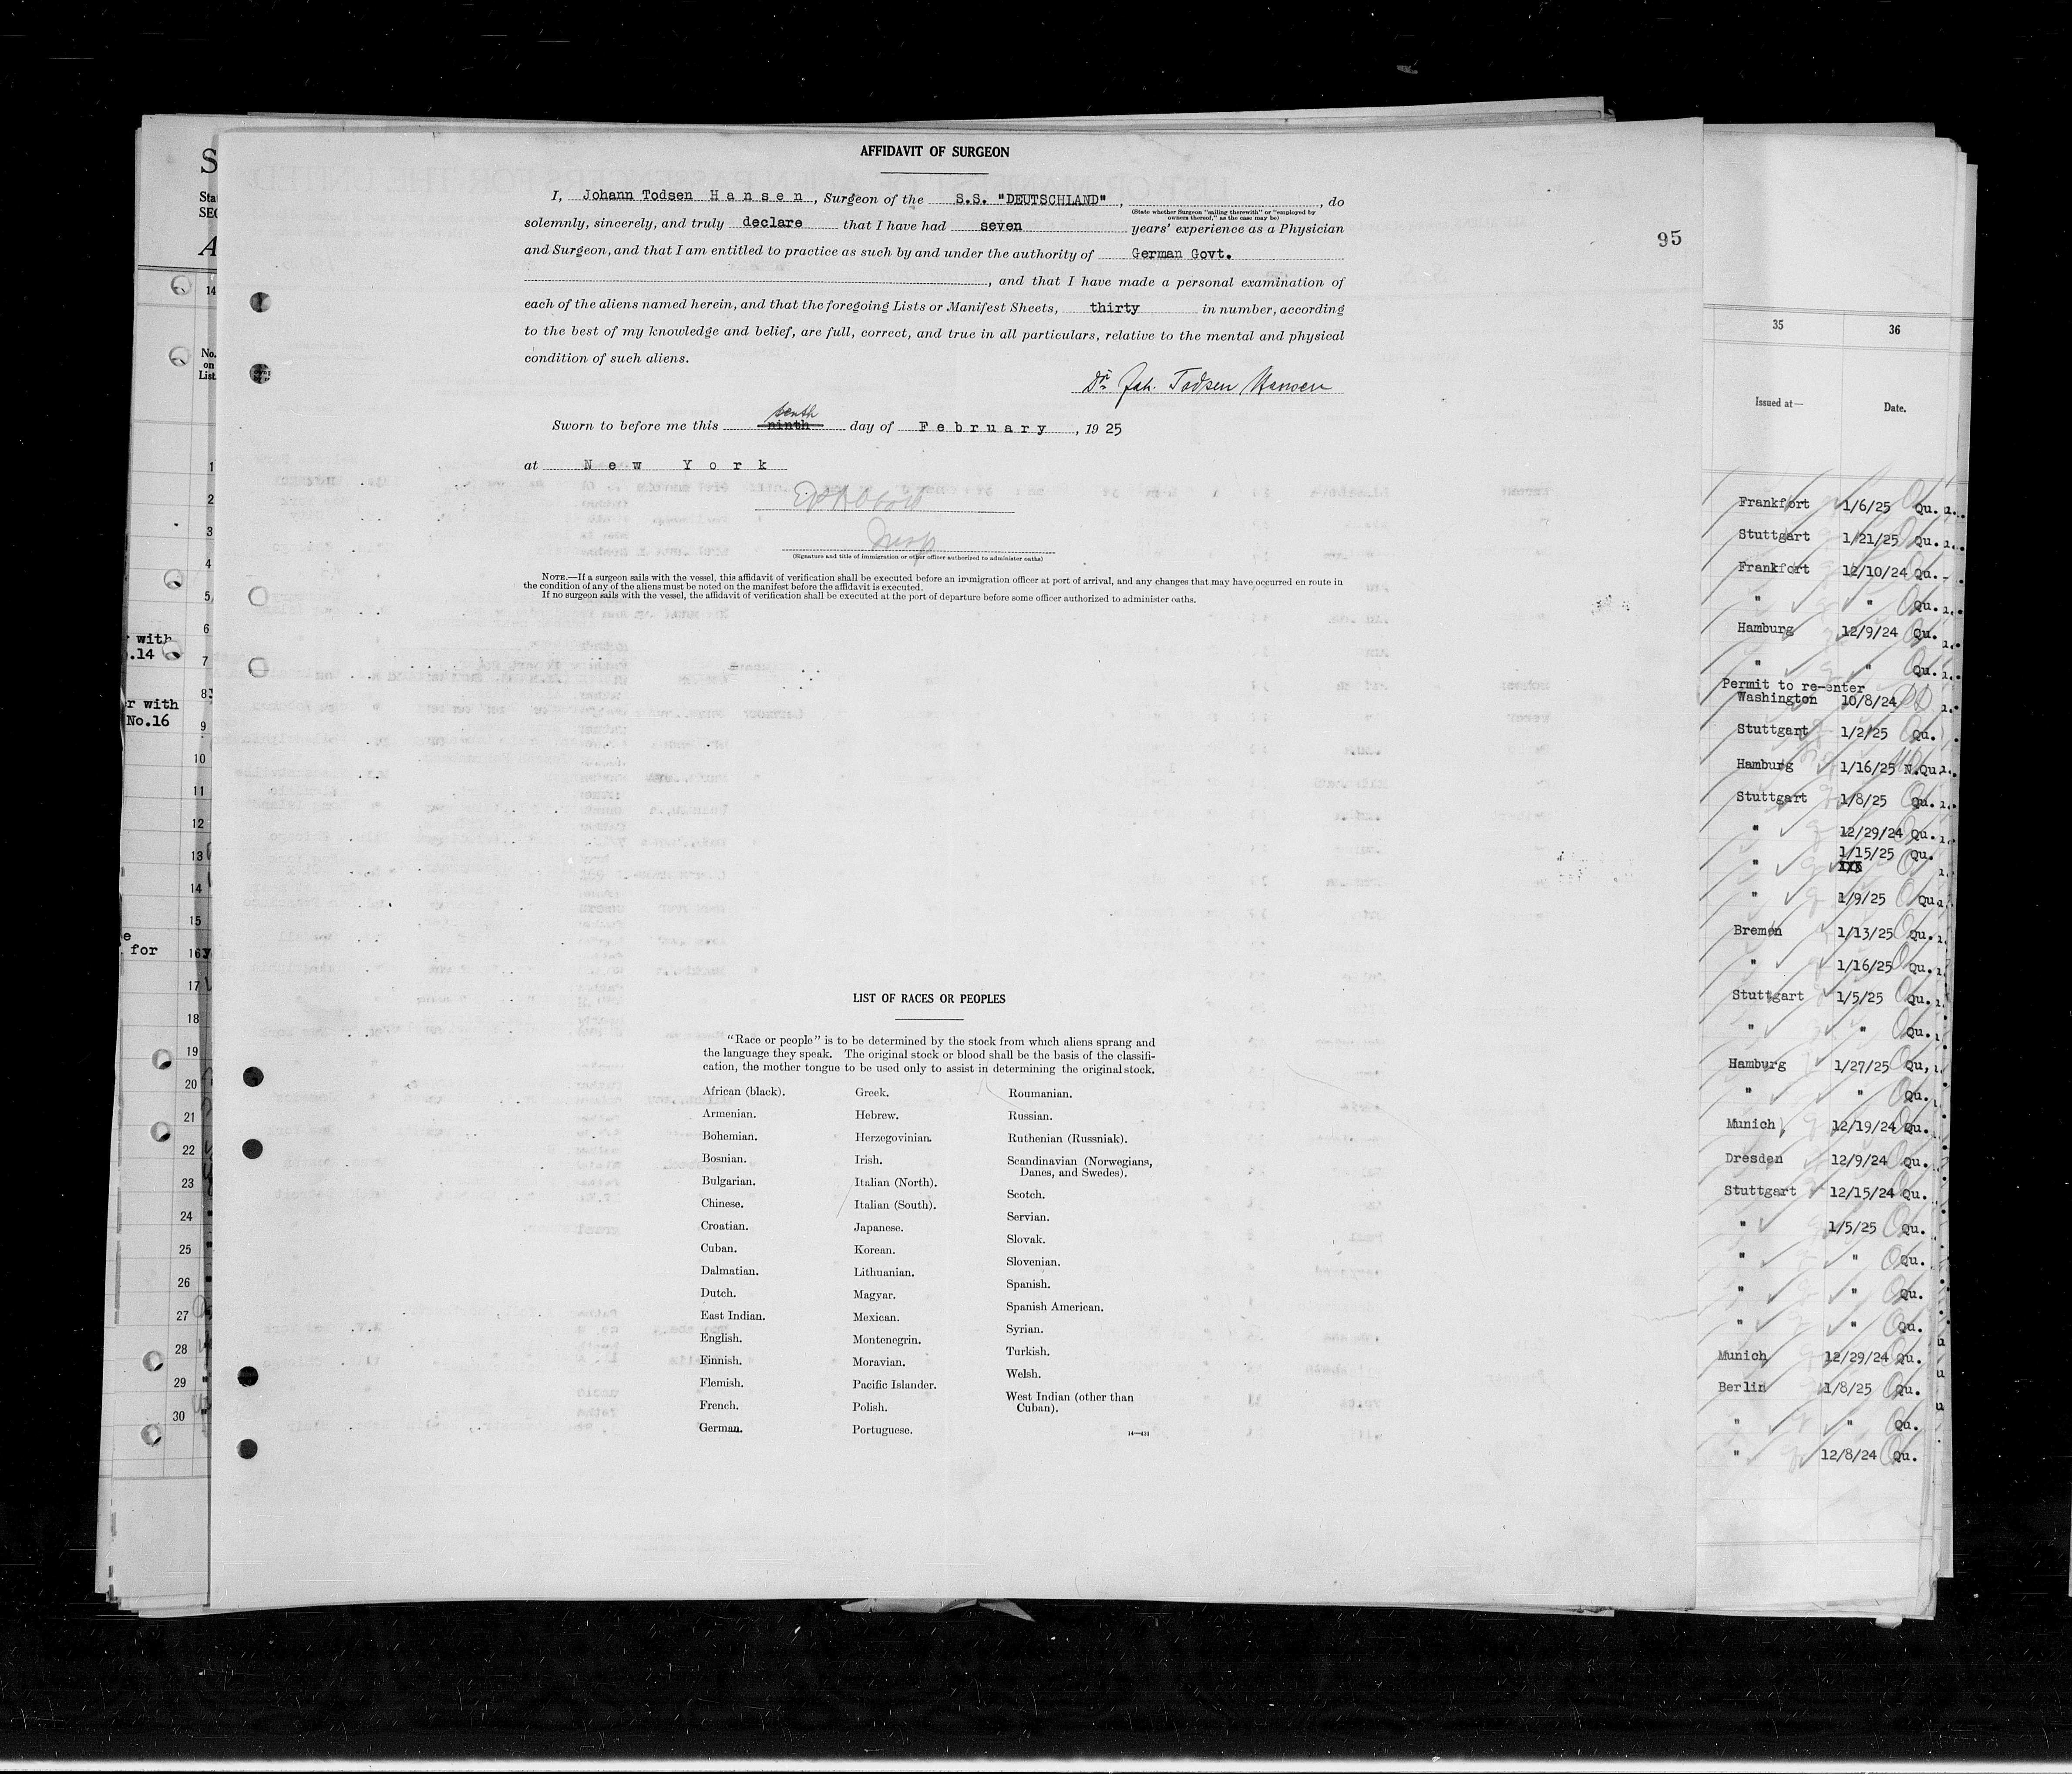 AFFIDAVIT OF SURGEON
I, Johann Todsen Hansen, Surgeon of the S.S. "DEUTSCHLAND", , do
(State whether Surgeon "sailing therewith" or "employed by
owners thereof," as the case may be)
solemnly, sincerely, and truly declare that I have had seven years' experience as a Physician
and Surgeon, and that I am entitled to practice as such by and under the authority of German Govt.
, and that I have made a personal examination of
each of the aliens named herein, and that the foregoing Lists or Manifest Sheets, thirty in number, according
to the best of my knowledge and belief, are full, correct, and true in all particulars, relative to the mental and physical
condition of such aliens.
Dr. Joh. Todsen Hansen
tenth
Sworn to before me this ninth day of February, 1925
at New York
Insp
(Signature and title of immigration or other officer authorized to administer oaths)
NOTE.—If a surgeon sails with the vessel, this affidavit of verification shall be executed before an immigration officer at port of arrival, and any changes that may have occurred en route in
the condition of any of the aliens must be noted on the manifest before the affidavit is executed.
If no surgeon sails with the vessel, the affidavit of verification shall be executed at the port of departure before some officer authorized to administer oaths.
95
LIST OF RACES OR PEOPLES
"Race or people" is to be determined by the stock from which aliens sprang and
the language they speak. The original stock or blood shall be the basis of the classifi-
cation, the mother tongue to be used only to assist in determining the original stock.
African (black).
Armenian.
Bohemian.
Bosnian.
Bulgarian.
Chinese.
Croatian.
Cuban.
Dalmatian.
Dutch.
East Indian.
English.
Finnish.
Flemish.
French.
German.
Greek.
Hebrew.
Herzegovinian.
Irish.
Italian (North).
Italian (South).
Japanese.
Korean.
Lithuanian.
Magyar.
Mexican.
Montenegrin.
Moravian.
Pacific Islander.
Polish.
Portuguese.
Roumanian.
Russian.
Ruthenian (Russniak).
Scandinavian (Norwegians,
Danes, and Swedes).
Scotch.
Servian.
Slovak.
Slovenian.
Spanish.
Spanish American.
Syrian.
Turkish.
Welsh.
West Indian (other than
Cuban).
14—431
S
Sta
SEC
A
14
No.
on
List
1
2
3
4
5
6
with
.14
7
8
r with
No.16
9
10
11
12
13
14
15
e
for
16
17
18
19
20
21
22
23
24
25
26
27
28
29
30
35 36
Issued at— Date.
Frankfort 1/6/25 Qu.
Stuttgart 1/21/25 Qu.
Frankfort 12/10/24 Qu.
" " Qu.
Hamburg 12/9/24 Qu.
" " Qu.
Permit to re-enter
Washington 10/8/24
Stuttgart 1/2/25 Qu.
Hamburg 1/16/25 N.Qu.
Stuttgart 1/8/25 Qu.
" 12/29/24 Qu.
" 1/15/25 Qu.
" 1/9/25 Qu
Bremen 1/13/25 Qu.
" 1/16/25 Qu.
Stuttgart 1/5/25 Qu.
" " Qu.
Hamburg 1/27/25 Qu,
" " Qu.
Munich 12/19/24 Qu.
Dresden 12/9/24 Qu.
Stuttgart 12/15/24 Qu.
" 1/5/25 Qu.
" " Qu.
" " Qu.
" " Qu.
Munich 12/29/24 Qu.
Berlin 1/8/25 Qu.
" " Qu.
" 12/8/24 Qu.